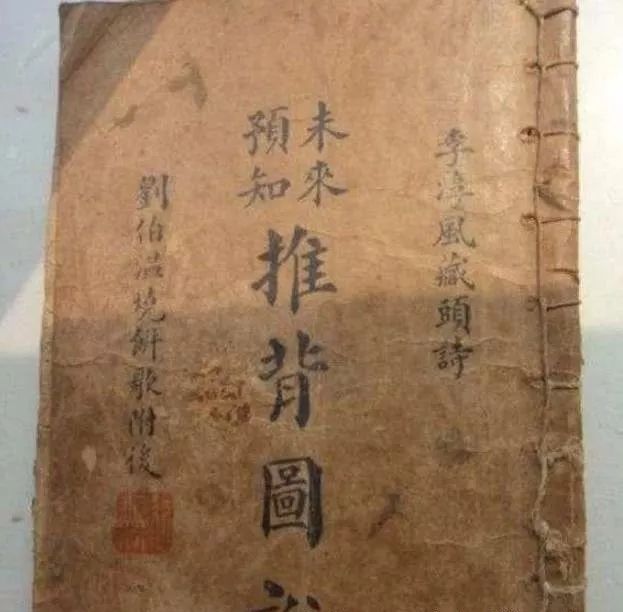 李淳風藏頭詩
未來
預知
推背圖
劉伯溫燒餅歌附後